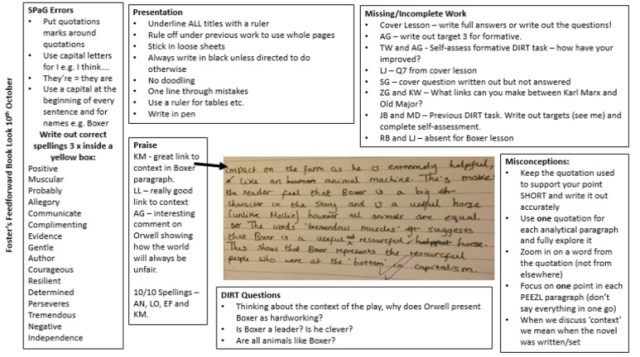 Foster's Feedforward Book Look 10th October
SPaG Errors
• Put quotations
marks around
quotations
• Use capital letters
for I e.g. I think....
• They're = they are
• Use a capital at the
beginning of every
sentence and for
names e.g. Boxer
Write out correct
spellings 3 x inside a
yellow box:
Positive
Muscular
Probably
Allegory
Communicate
Complimenting
Evidence
Gentle
Author
Courageous
Resilient
Determined
Perseveres
Tremendous
Negative
Independence
Presentation
• Underline ALL titles with a ruler
• Rule off under previous work to use whole pages
• Stick in loose sheets
• Always write in black unless directed to do
otherwise
• No doodling
• One line through mistakes
• Use a ruler for tables etc.
• Write in pen
Missing/Incomplete Work
• Cover Lesson – write full answers or write out the questions!
• AG – write out target 3 for formative.
• TW and AG - Self-assess formative DIRT task – how have your
improved?
• LJ – Q7 from cover lesson
• SG – cover question written out but not answered
• ZG and KW – What links can you make between Karl Marx and
Old Major?
• JB and MD – Previous DIRT task. Write out targets (see me) and
complete self-assessment.
• RB and LJ – absent for Boxer lesson
Praise
KM - great link to
context in Boxer
paragraph.
LL – really good
link to context
AG – interesting
comment on
Orwell showing
how the world
will always be
unfair.
10/10 Spellings –
AN, LO, EF and
KM.
impact on the farm as he is extremely helpful,
like an human animal machine. This makes
the reader feel that Boxer is a big
character in the story and is a useful horse
(unlike Mollie) however all animals are equal.
The words 'tremendous muscles' suggests
that Boxer is a useful resourceful horse.
This shows that Boxer represents the resourceful
people who were at the 'bottom' in capitalism.
DIRT Questions
• Thinking about the context of the play, why does Orwell present
Boxer as hardworking?
• Is Boxer a leader? Is he clever?
• Are all animals like Boxer?
Misconceptions:
• Keep the quotation used
to support your point
SHORT and write it out
accurately
• Use one quotation for
each analytical paragraph
and fully explore it
• Zoom in on a word from
the quotation (not from
elsewhere)
• Focus on one point in
each PEEZL paragraph (don't
say everything in one go)
• When we discuss 'context'
we mean when the novel
was written/set